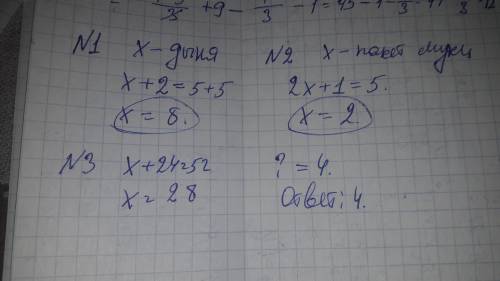 + 9 - 1/3 - 1 = 45 - 1
N1 x - дыня
x + 2 = 5 + 5
x = 8.
N2 x - пакет муки
2x + 1 = 5.
x = 2.
N3 x + 24 = 52
x = 28
? = 4.
Ответ: 4.